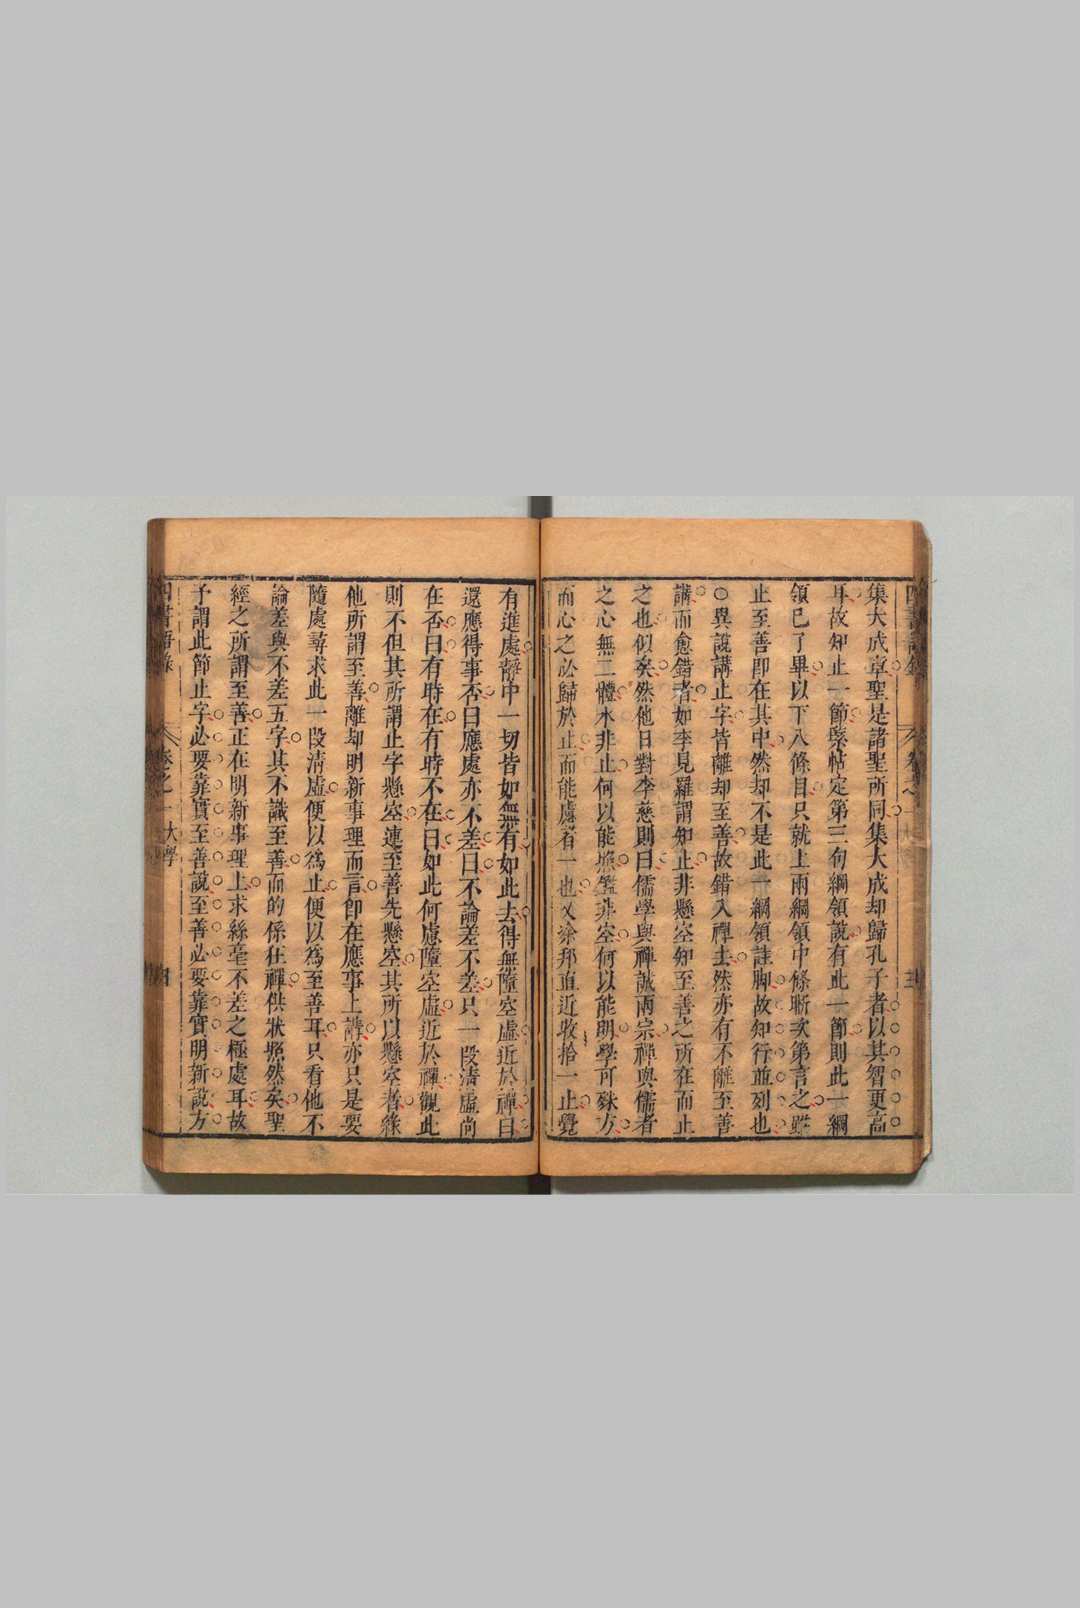 集大成章聖是諸聖所同集大成却歸孔子者以其智更高
耳故知止一節緊帖定第三句綱領說有此一節則此一綱
領已了畢以下八條目只就上兩綱領中條晰次第言之
止至善卽在其中然却不是此一綱領註脚故知行並列也
○異說講止字皆離却至善故錯入禪去然亦有不離至善
講而愈錯者如李見羅謂知止非懸空知至善之所在而止
之也似矣然他日對李慈則曰儒學與禪誠兩宗禪與儒者
之心無二體水非止何以能照鑑非空何以能明學可殊方
而心之必歸於止而能慮者一也又涂邦直近收拾一止覺
有進處靜中一切皆如無有如此去得無墮空虛近於禪曰
還應得事否曰應處亦不差曰不論差不差只一段清虛尚
在否曰有時在有時不在曰如此何慮墮空虛近於禪觀此
則不但其所謂止字懸空連至善先懸空其所以懸空者緣
他所謂至善離却明新事理而言卽在應事上講亦只是要
隨處尋求此一段清虛便以爲止便以爲至善耳只看他不
論差與不差五字其不識至善而的係狂禪供狀照然矣聖
經之所謂至善正在明新事理上求絲毫不差之極處耳故
予謂此節止字必要靠實至善說至善必要靠實明新說方
四書語錄 卷之一 大學 四